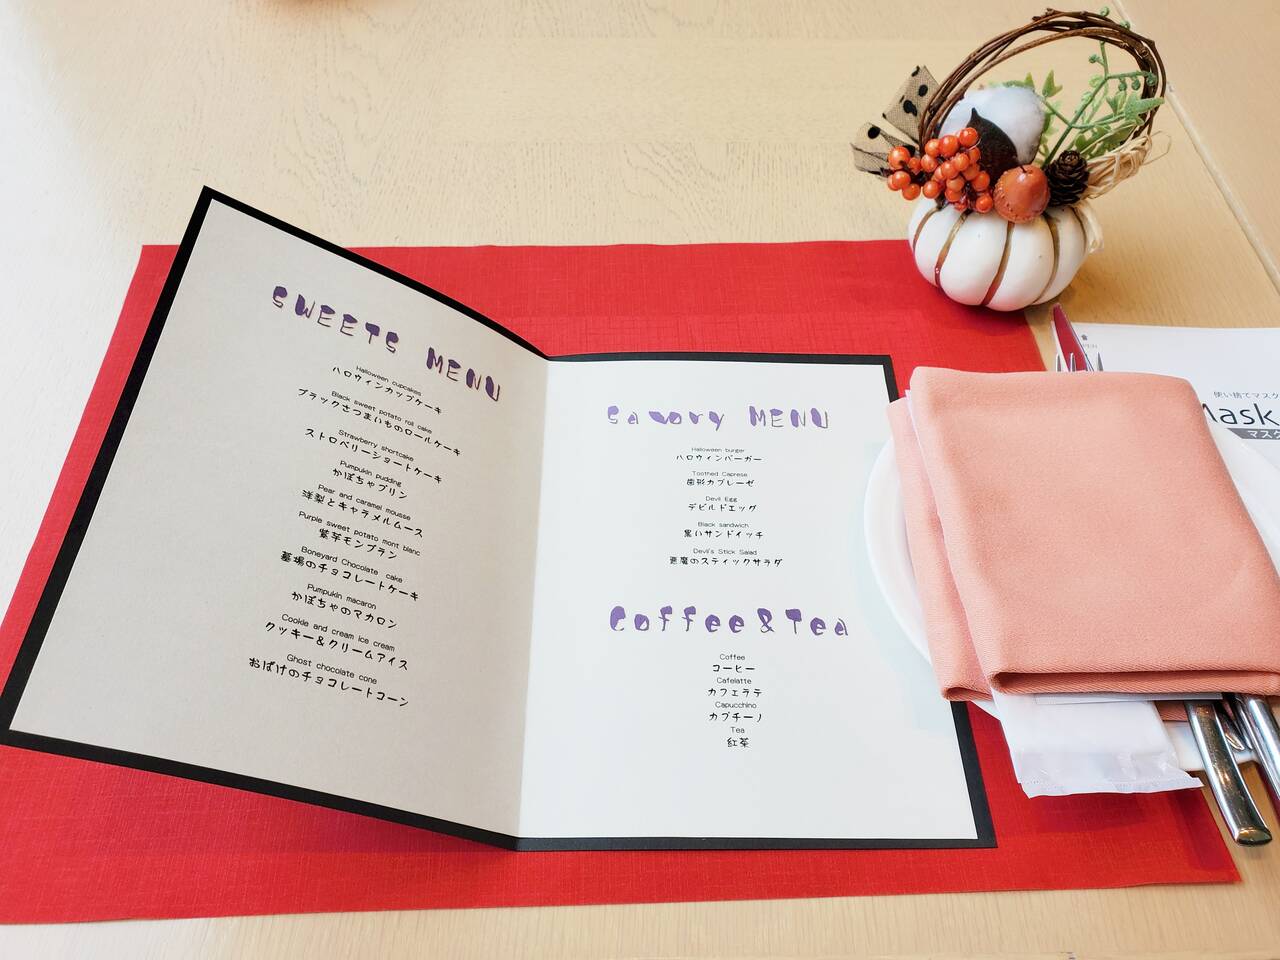 SWEETS MENU
Halloween cupcakes
ハロウィンカップケーキ
Black sweet potato roll cake
ブラックさつまいものロールケーキ
Strawberry shortcake
ストロベリーショートケーキ
Pumpukin pudding
かぼちゃプリン
Pear and caramel mousse
洋梨とキャラメルムース
Purple sweet potato mont blanc
紫芋モンブラン
Boneyard Chocolate cake
墓場のチョコレートケーキ
Pumpukin macaron
かぼちゃのマカロン
Cookie and cream ice cream
クッキー＆クリームアイス
Ghost chocolate cone
おばけのチョコレートコーン
Savory MENU
Halloween burger
ハロウィンバーガー
Toothed Caprese
歯形カプレーゼ
Devil Egg
デビルドエッグ
Black sandwich
黒いサンドイッチ
Devil's Stick Salad
悪魔のスティックサラダ
Coffee&Tea
Coffee
コーヒー
Cafelatte
カフェラテ
Capucchino
カプチーノ
Tea
紅茶
使い捨てマスク
Mask
マスク